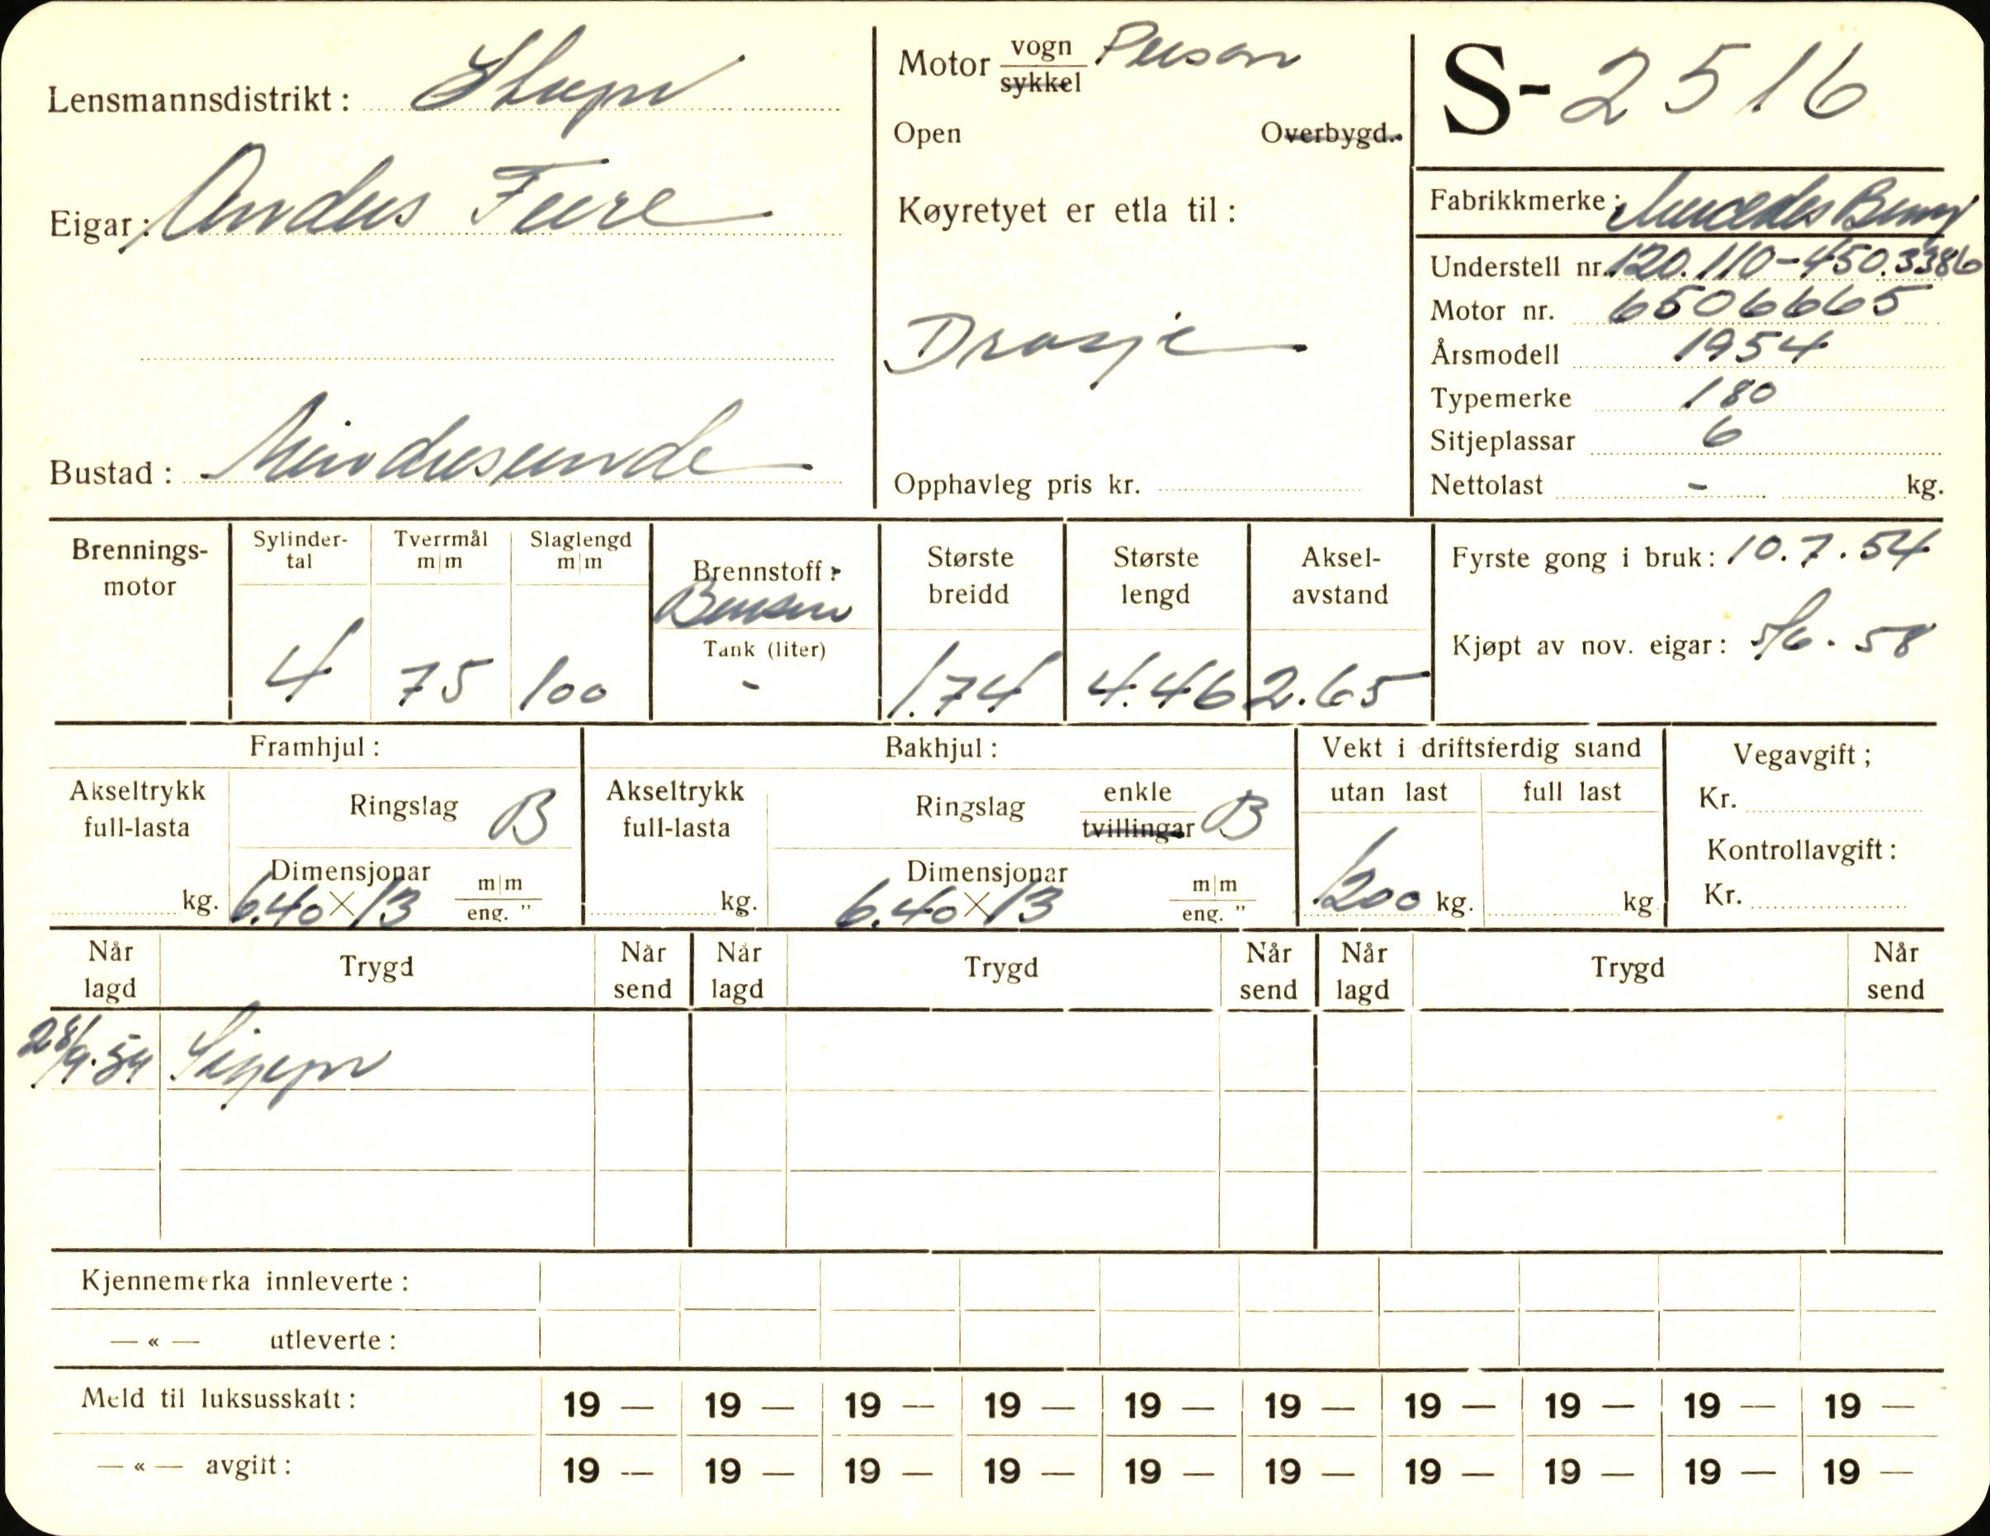 Lensmannsdistrikt: Stryn
Eigar: Anders Feire
Bustad: Mindresunde
Motor vogn Person
sykkel
Open Overbygd.
Køyretyet er etla til:
Drosje
Opphavleg pris kr.
S- 2516
Fabrikkmerke: Mercedes Benz
Understell nr. 120.110-450.3386
Motor nr. 6506665
Årsmodell 1954
Typemerke 180
Sitjeplassar 6
Nettolast - kg.
Brennings-
motor
Sylinder-
tal
4
Tverrmål
m/m
75
Slaglengd
m/m
100
Brennstoff:
Bensin
Tank (liter)
-
Største
breidd
1.74
Største
lengd
4.46
Aksel-
avstand
2.65
Fyrste gong i bruk: 10.7.54
Kjøpt av nov. eigar: 5/6.58
Framhjul:
Akseltrykk
full-lasta
kg.
Ringslag B
Dimensjonar
6.40 × 13 m/m
eng. "
Bakhjul:
Akseltrykk
full-lasta
kg.
Ringslag enkle
tvillingar B
Dimensjonar
6.40 × 13 m/m
eng. "
Vekt i driftsferdig stand
utan last full last
1200 kg. kg
Vegavgift;
Kr.
Kontrollavgift:
Kr.
Når
lagd Trygd Når
send Når
lagd Trygd Når
send Når
lagd Trygd Når
send
28/9.54
Kjennemerka innleverte:
— « — utleverte:
Meld til luksusskatt: 19 — 19 — 19 — 19 — 19 — 19 — 19 — 19 — 19 — 19 —
— « — avgift: 19 — 19 — 19 — 19 — 19 — 19 — 19 — 19 — 19 — 19 —